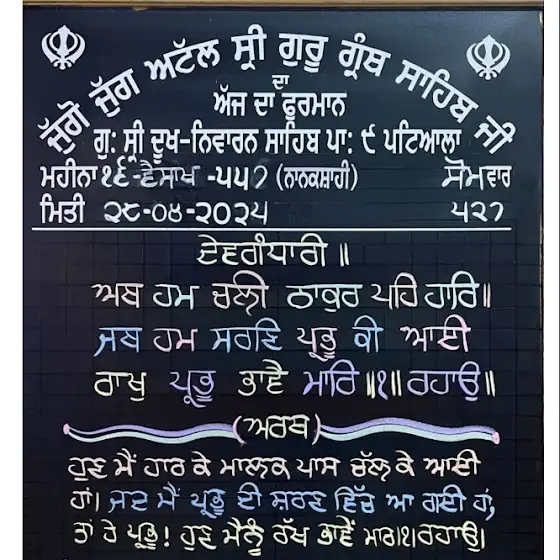 ਜੁੱਗੋ ਜੁੱਗ ਅਟੱਲ ਸ੍ਰੀ ਗੁਰੂ ਗ੍ਰੰਥ ਸਾਹਿਬ ਜੀ
ਦਾ
ਅੱਜ ਦਾ ਫੁਰਮਾਨ
ਗੁ: ਸ੍ਰੀ ਦੂਖ-ਨਿਵਾਰਨ ਸਾਹਿਬ ਪਾ: ੯ ਪਟਿਆਲਾ
ਮਹੀਨਾ ੧੬-ਵੈਸਾਖ -੫੫੭ (ਨਾਨਕਸ਼ਾਹੀ) ਸੋਮਵਾਰ
ਮਿਤੀ ੨੮-੦੪-੨੦੨੫ ੫੨੭
ਦੇਵਗੰਧਾਰੀ ॥
ਅਬ ਹਮ ਚਲੀ ਠਾਕੁਰ ਪਹਿ ਹਾਰਿ॥
ਜਬ ਹਮ ਸਰਣਿ ਪ੍ਰਭੂ ਕੀ ਆਈ
ਰਾਖੁ ਪ੍ਰਭੂ ਭਾਵੈ ਮਾਰਿ ॥੧॥ ਰਹਾਉ॥
(ਅਰਥ)
ਹੁਣ ਮੈਂ ਹਾਰ ਕੇ ਮਾਲਕ ਪਾਸ ਚੱਲ ਕੇ ਆਈ
ਹਾਂ। ਜਦ ਮੈਂ ਪ੍ਰਭੂ ਦੀ ਸ਼ਰਣ ਵਿੱਚ ਆ ਗਈ ਹਾਂ,
ਤਾਂ ਹੇ ਪ੍ਰਭੂ! ਹੁਣ ਮੈਨੂੰ ਰੱਖ ਭਾਵੇਂ ਮਾਰ।੧।ਰਹਾਉ।